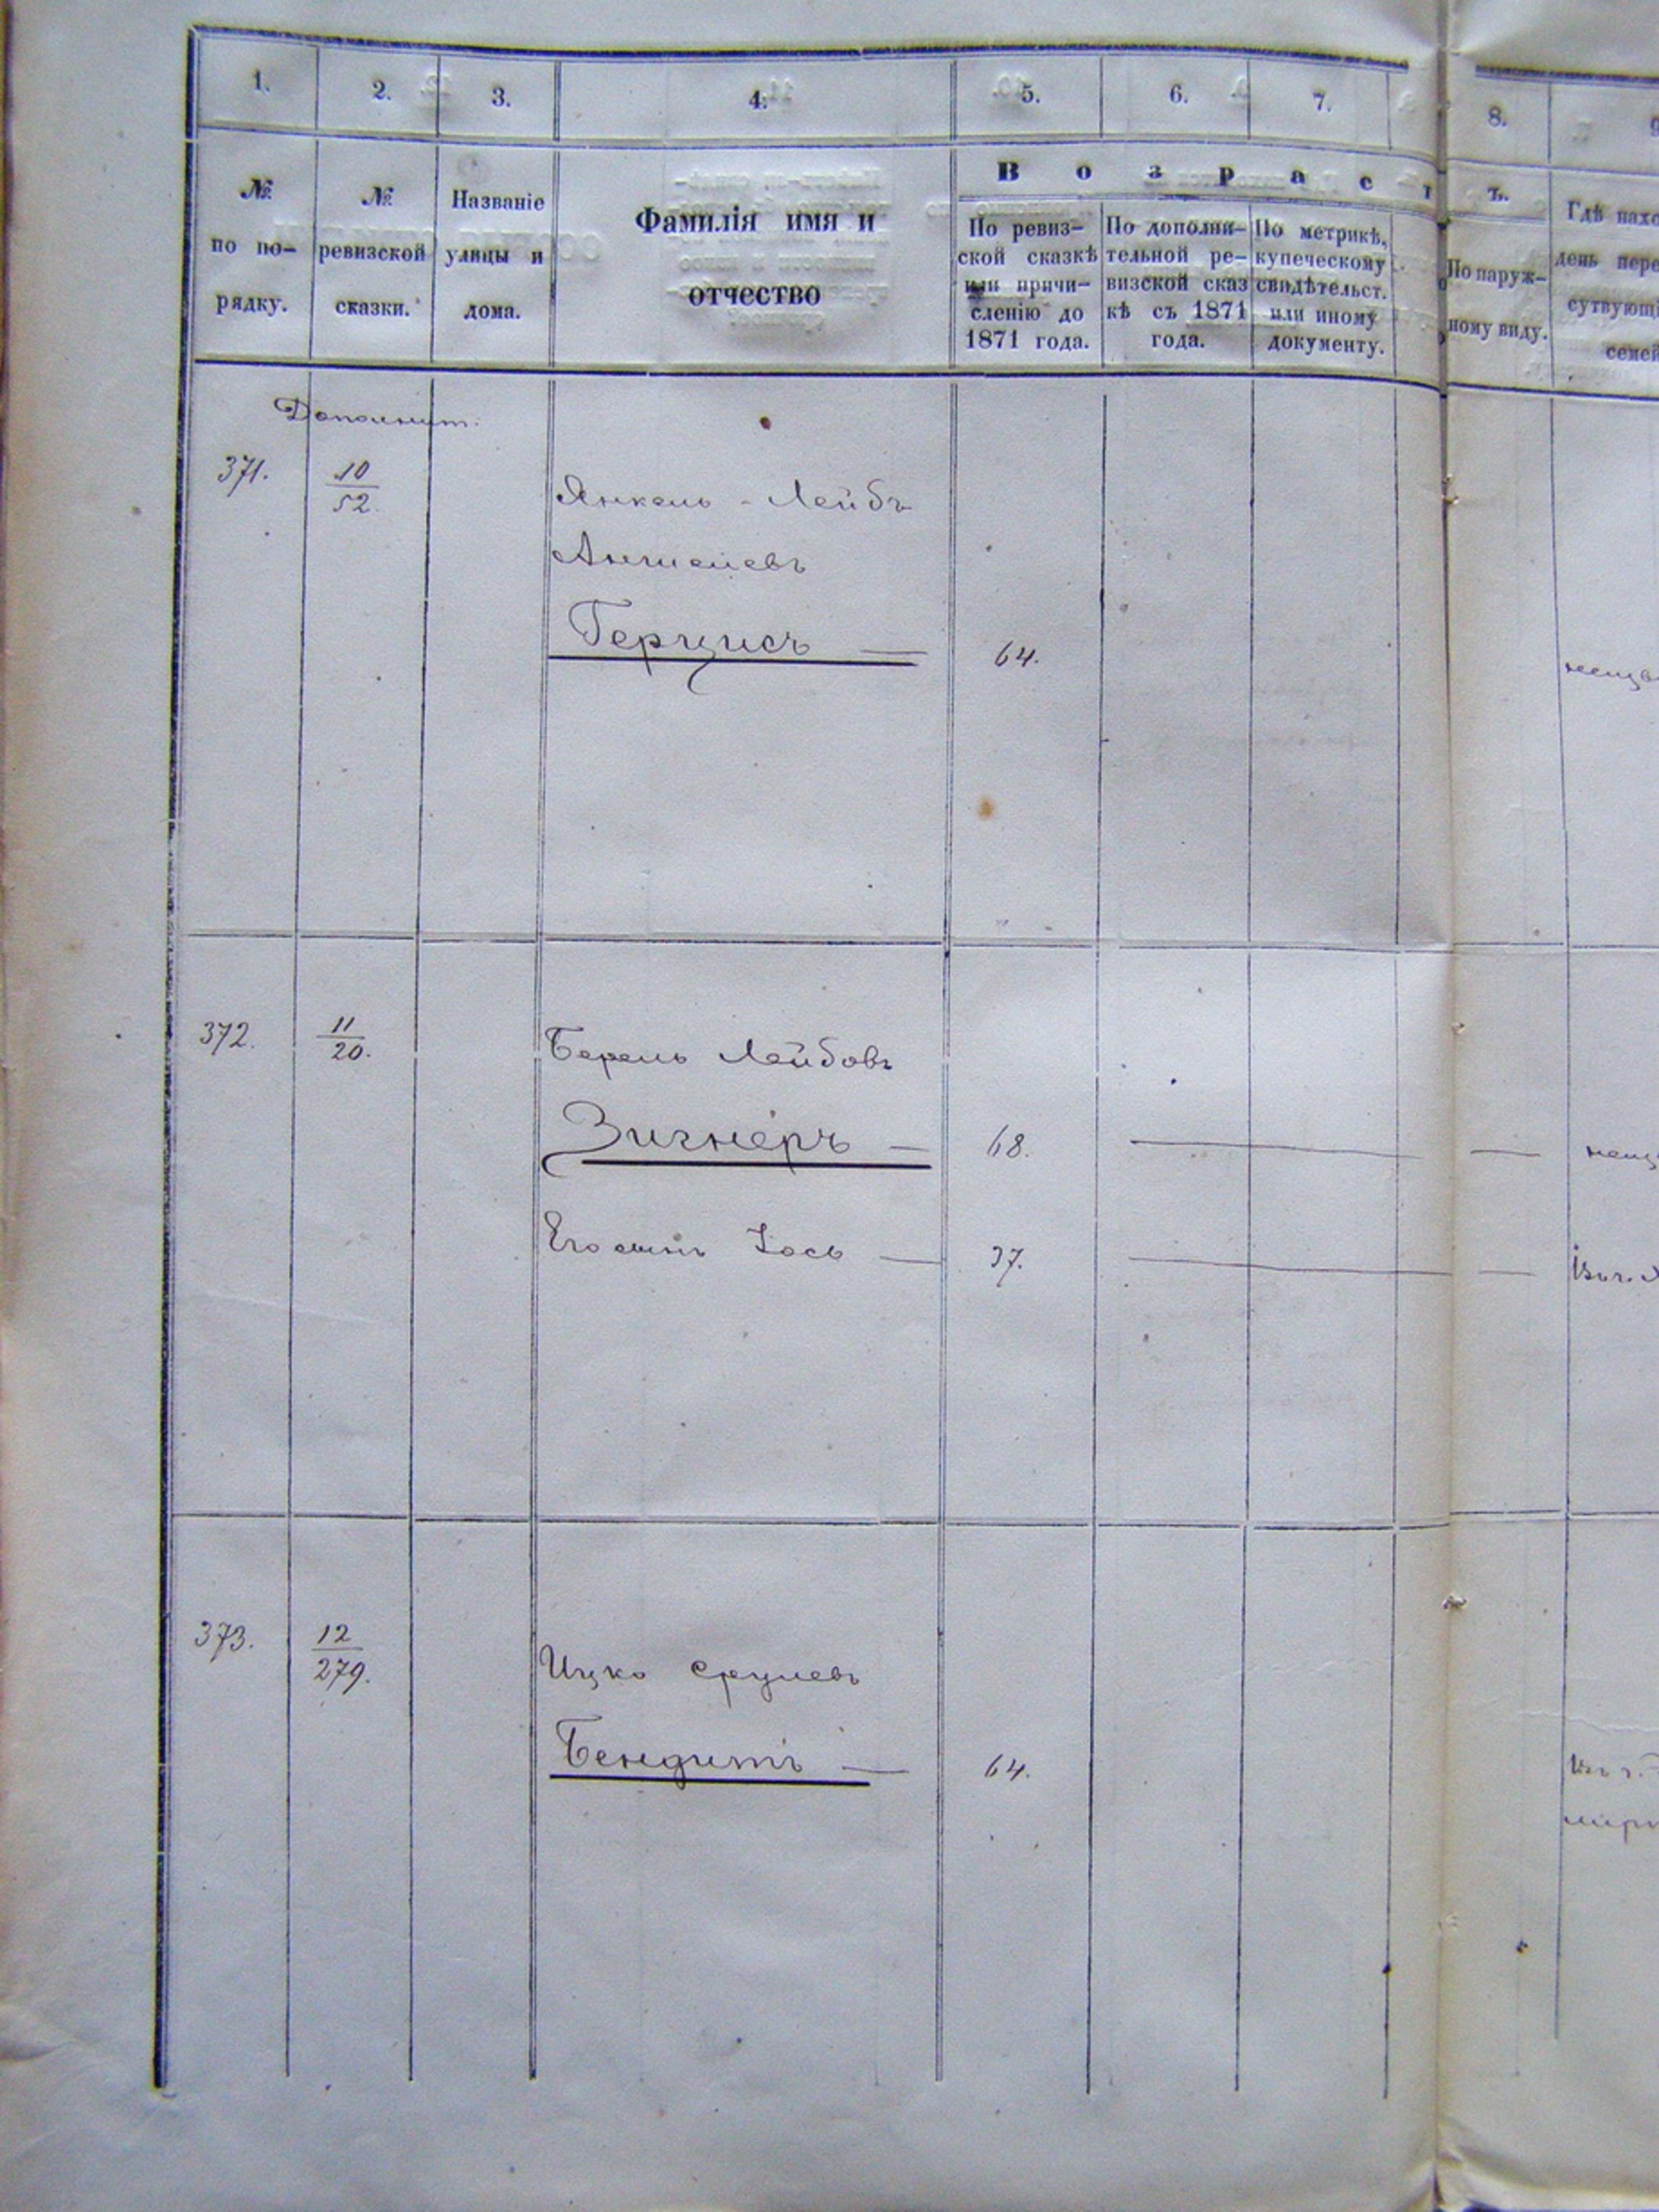 1. 2. 3. 4. 5. 6. 7. 8. 9
№ по по-рядку.
№ ревизской сказки.
Названіе улицы и дома.
Фамилія имя и
отчество
Возраст
ъ.
По ревиз-
ской сказкѣ
или причи-
сленію до
1871 года.
По дополни-
тельной ре-
визской сказ
кѣ съ 1871
года.
По метрикѣ,
купеческому
свидѣтельст.
или иному
документу.
По наруж-
ному виду.
Гдѣ нахо
день пере
сутвующі
семей
Дополнит.
371. 10/52. Янкель-Лейбъ
Анчелевъ
Герцисъ — 64.
372. 11/20. Берель Лейбовъ
Зигнеръ — 68.
Его сынъ Іось — 37.
373. 12/279. Ицко Срулевъ
Бендитъ — 64.